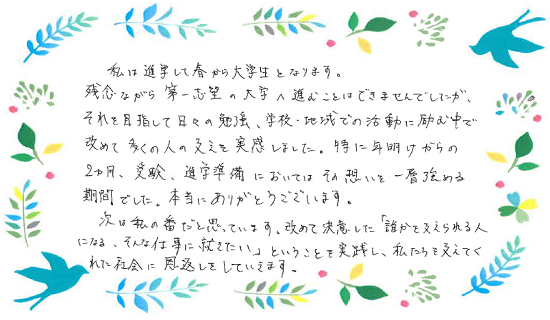 私は進学して春から大学生となります。
残念ながら第一志望の大学へ進むことはできませんでしたが、
それを目指して日々の勉強、学校・地域での活動に励む中で
改めて多くの人の支えを実感しました。特に年明けからの
2ヵ月、受験、進学準備においてはその想いを一層強める
期間でした。本当にありがとうございます。
次は私の番だと思っています。改めて決意した「誰かを支えられる人
になる、そんな仕事に就きたい」ということを実践し、私たちを支えてく
れた社会に恩返しをしていきます。